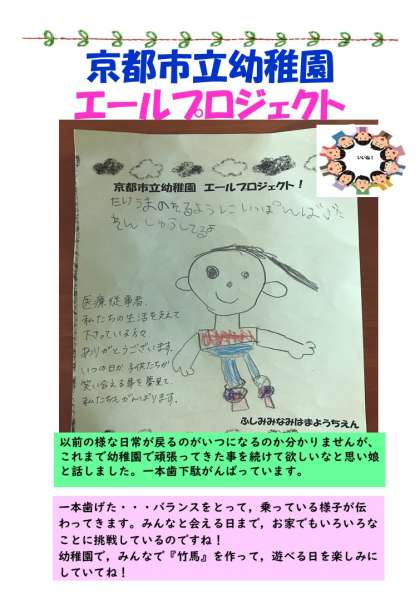 京都市立幼稚園
エールプロジェクト
いいね！
京都市立幼稚園 エールプロジェクト！
たけうまのれるように いっぽんばげた
れんしゅうしてるよ
医療従事者、
私たちの生活を支えて
下さっている方々
ありがとうございます。
いつの日か子供たちが
笑い合える事を夢見て、
私たちもがんばります。
ふしみみなみはまようちえん
以前の様な日常が戻るのがいつになるのか分かりませんが、
これまで幼稚園で頑張ってきた事を続けて欲しいなと思い娘
と話しました。一本歯下駄がんばっています。
一本歯げた・・・バランスをとって，乗っている様子が伝
わってきます。みんなと会える日まで，お家でもいろいろな
ことに挑戦しているのですね！
幼稚園で，みんなで『竹馬』を作って，遊べる日を楽しみに
していてね！